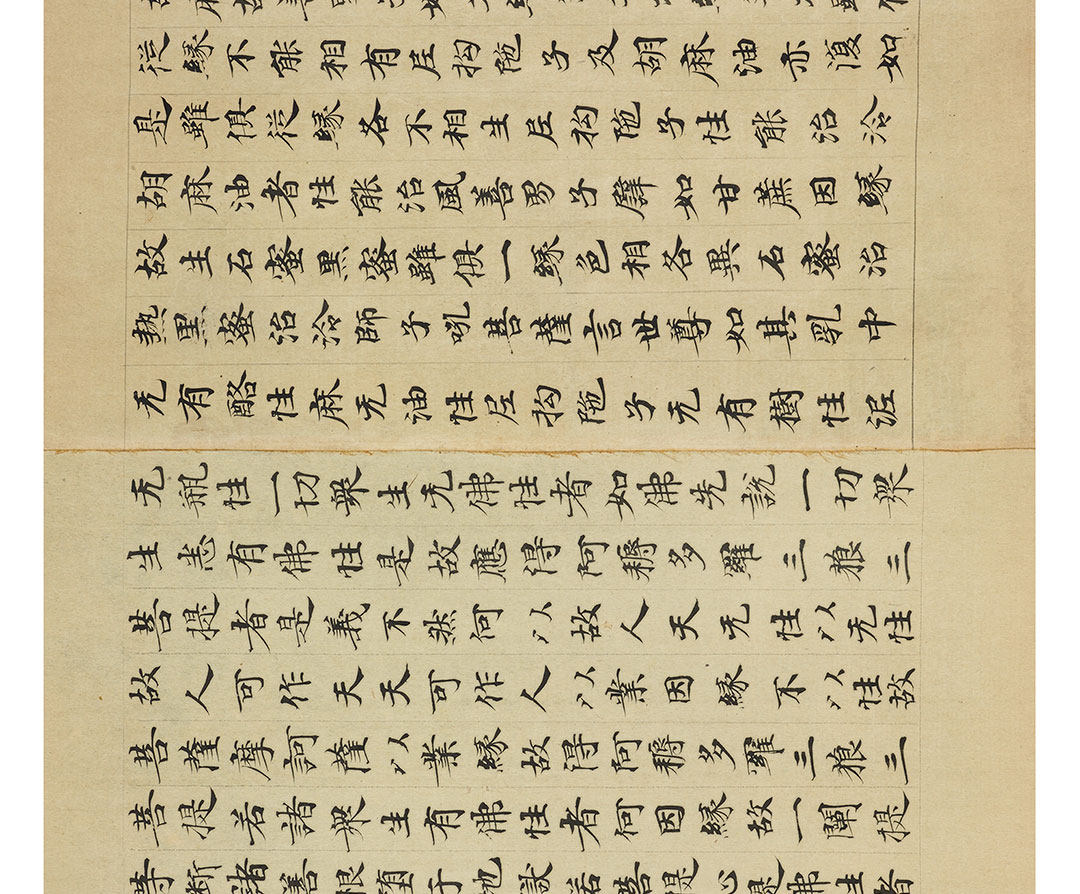 從緣不能相有尼拘陁子及胡麻油亦復如
是雖俱從緣各不相生尼拘陁子性能治冷
胡麻油者性能治風善男子譬如甘蔗因緣
故生石蜜黑蜜雖俱一緣色相各異石蜜治
熱黑蜜治冷師子吼菩薩言世尊如其乳中
无有酪性麻无油性尼拘陁子无有樹性泥
无瓶性一切眾生无佛性者如佛先說一切眾
生悉有佛性是故應得阿耨多羅三藐三
菩提者是義不然何以故人天无性以无性
故人可作天天可作人以業因緣不以性故
菩薩摩訶薩以業緣故得阿耨多羅三藐三
菩提若諸眾生有佛性者何因緣故一闡提
等斷諸善根墮于地獄若菩提心是佛性者